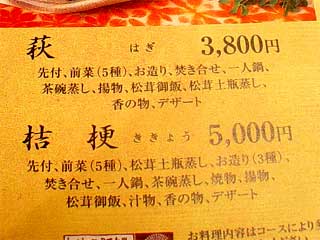 萩 はぎ 3,800円
先付、前菜(5種)、お造り、焚き合せ、一人鍋、
茶碗蒸し、揚物、松茸御飯、松茸土瓶蒸し、
香の物、デザート
桔梗 ききょう 5,000円
先付、前菜(5種)、松茸土瓶蒸し、お造り(3種)、
焚き合せ、一人鍋、茶碗蒸し、焼物、揚物、
松茸御飯、汁物、香の物、デザート
お料理内容はコースにより